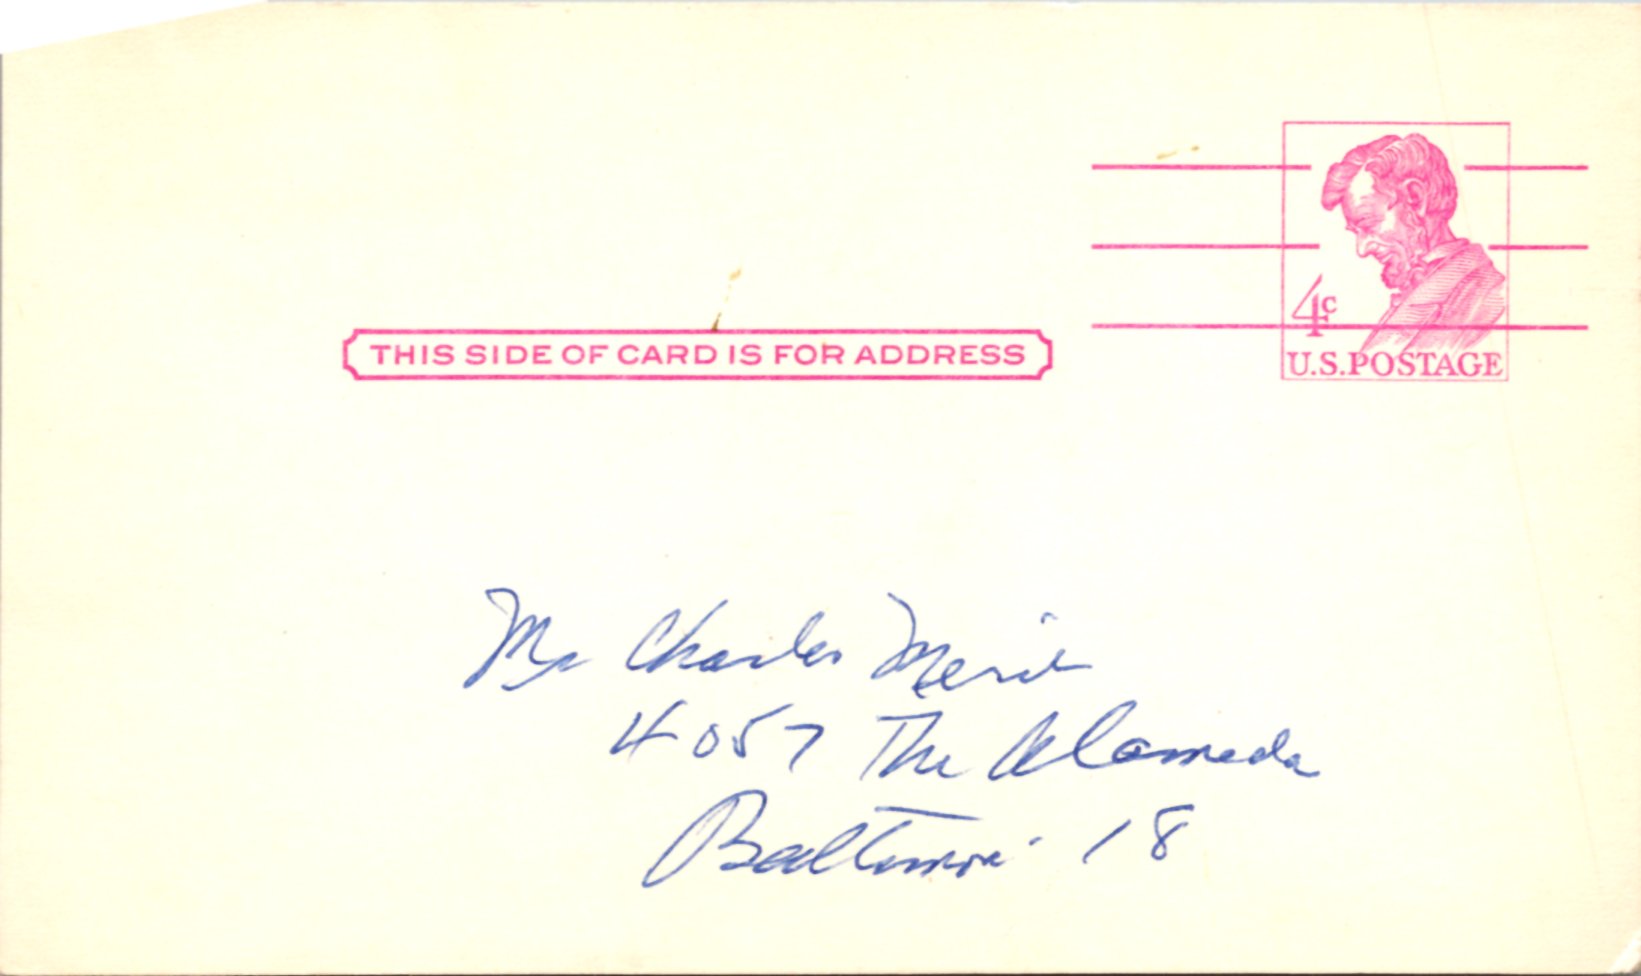 4c
U.S.POSTAGE
THIS SIDE OF CARD IS FOR ADDRESS
Mr Charles Merit
4057 The Alameda
Baltimore 18